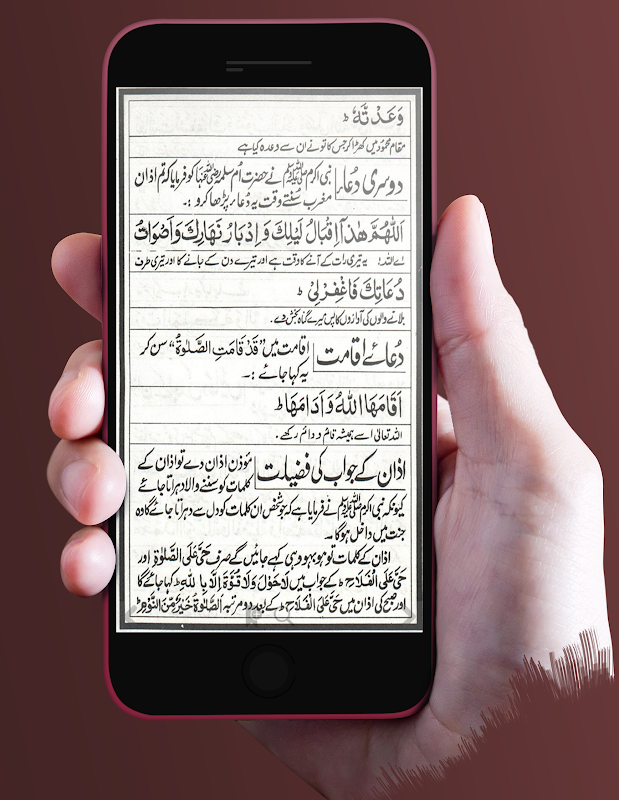 وَعَدْتَّهٗ ط
مقام محمود میں کھڑا کر جس کا تو نے ان سے وعدہ کیا ہے
دوسری دُعا: نبی اکرم ﷺ نے حضرت اُم سلمہ رضی اللہ عنہا کو فرمایا کہ تم اذان
مغرب سُنتے وقت یہ دُعا پڑھا کرو :۔
اَللّٰهُمَّ هٰذَآ اِقْبَالُ لَيْلِكَ وَاِدْبَارُ نَهَارِكَ وَاَصْوَاتُ
اے اللہ! یہ تیری رات کے آنے کا وقت ہے اور تیرے دن کے جانے کا اور تیری طرف
دُعَاتِكَ فَاغْفِرْلِىْ ط
بلانے والوں کی آوازوں کا پس میرے گناہ بخش دے۔
دُعائے اقامت اقامت میں ”قَدْ قَامَتِ الصَّلٰوةُ“ سن کر
یہ کہا جائے :۔
اَقَامَهَا اللّٰهُ وَاَدَامَهَا ط
اللہ تعالیٰ اسے ہمیشہ قائم و دائم رکھے۔
اذان کے جواب کی فضیلت مؤذن اذان دے تو اذان کے
کلمات کو سننے والا دہراتا جائے
کیونکہ نبی اکرم ﷺ نے فرمایا ہے کہ جو شخص ان کلمات کو دل سے دہراتا جائے گا وہ
جنت میں داخل ہو گا۔
اذان کے کلمات تو ہو بہو وہی کہے جائیں گے صرف حَیَّ عَلَی الصَّلٰوةِ اور
حَیَّ عَلَی الْفَلَاحِ ط کے جواب میں لَا حَوْلَ وَلَا قُوَّةَ اِلَّا بِاللّٰهِ ط کہا جائے گا
اور صبح کی اذان میں حَیَّ عَلَی الْفَلَاحِ ط کے بعد دو مرتبہ اَلصَّلٰوةُ خَیْرٌ مِّنَ النَّوْمِ ط